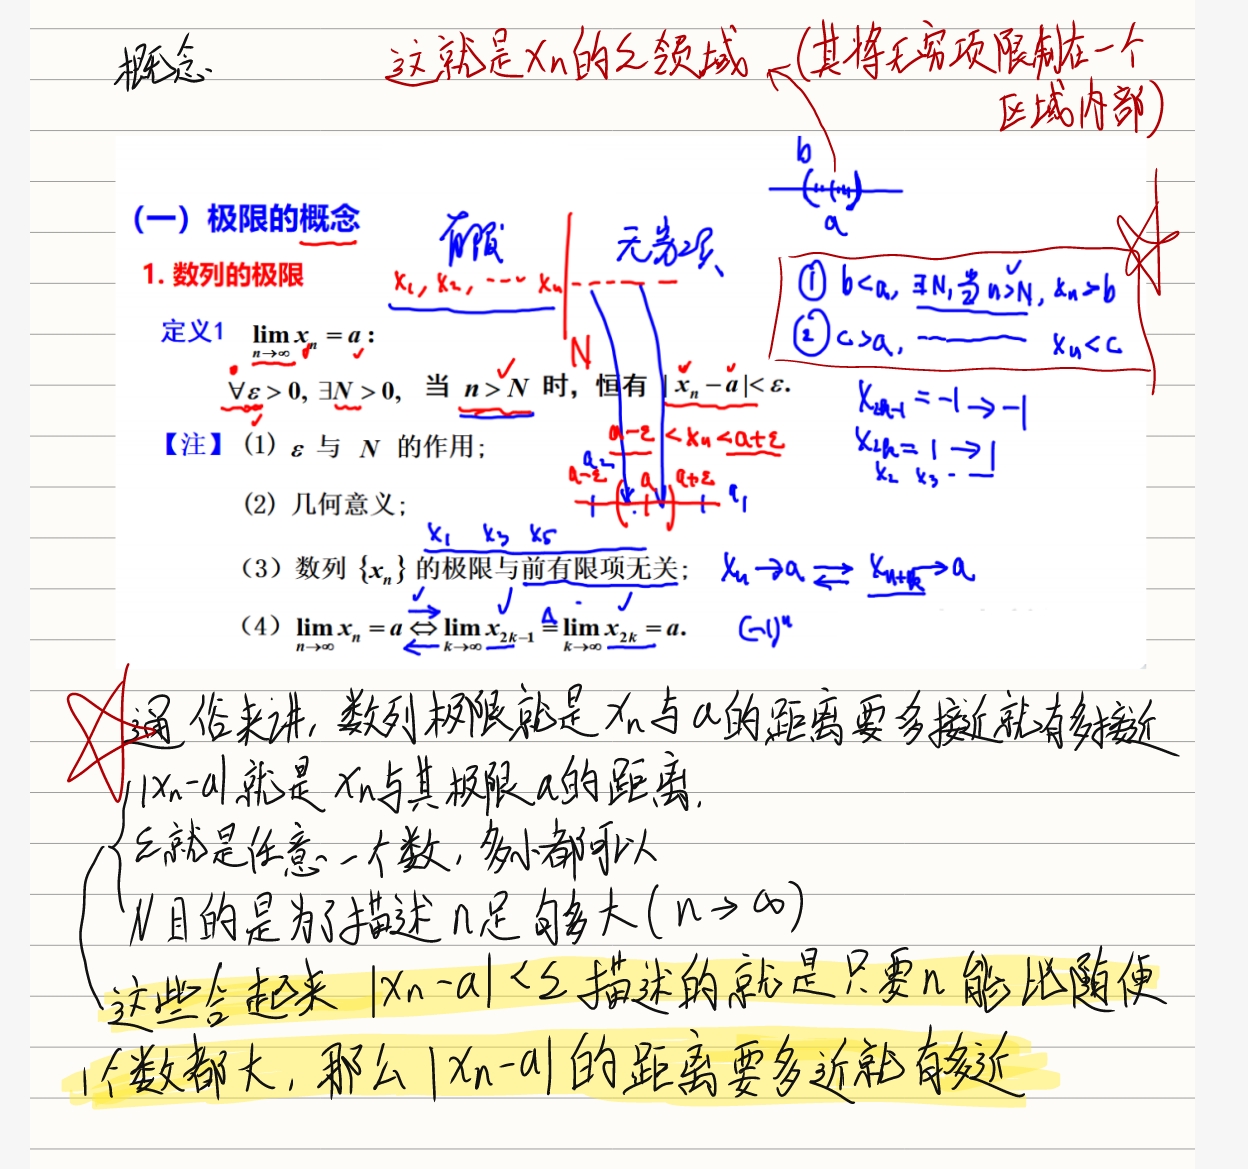 概念.
这就是xn的ε领域 (其将无穷项限制在一个
区域内部)
b
a
(一) 极限的概念
有限
无穷项
1. 数列的极限
x1, x2, ··· xn
N
① b<a, ∃N, 当 n>N, xn>b
② c>a, ——— xn<c
定义1 lim xn = a :
n→∞
∀ε > 0, ∃N > 0, 当 n > N 时, 恒有 |xn − a| < ε.
a−ε < xn < a+ε
x2k-1 = -1 → -1
x2k = 1 → 1
x2 x3 - —
【注】(1) ε 与 N 的作用;
a2
a-ε a a+ε
a1
(2) 几何意义;
x1 x3 x5
(3) 数列 {xn} 的极限与前有限项无关;
xn → a ⇌ xn+k → a
(4) lim xn = a ⇔ lim x2k−1 = lim x2k = a.
n→∞ k→∞ k→∞
(-1)^n
通俗来讲, 数列极限就是 xn与 a的距离要多接近就有多接近
|xn-a| 就是 xn与其极限a的距离.
ε就是任意一个数, 多小都可以
N目的是为了描述 n足够多大(n→∞)
这些合起来 |xn-a|<ε 描述的就是只要n能比随便
1个数都大, 那么|xn-a|的距离要多近就有多近